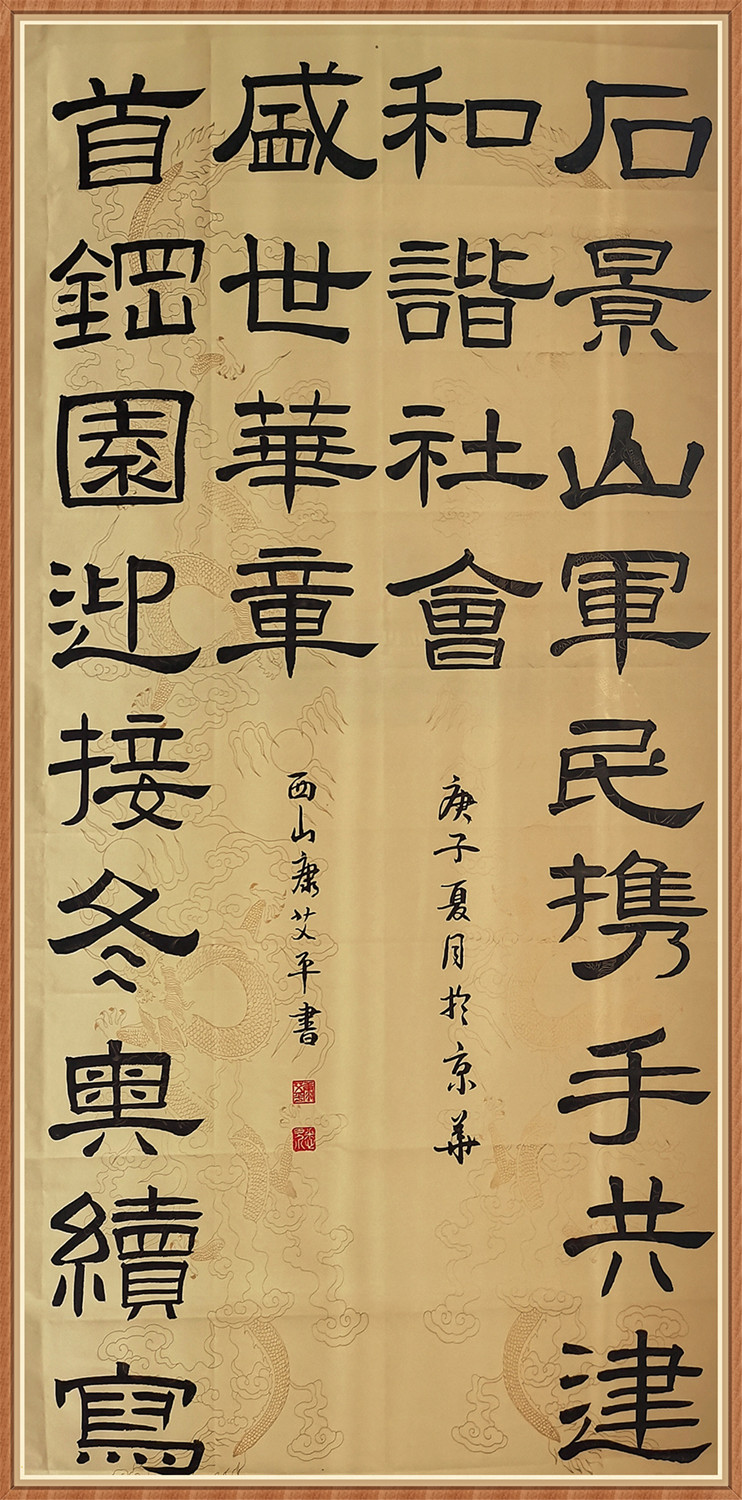 石景山軍民携手共建
和諧社會
庚子夏月於京華
首鋼園迎接冬奥續寫
盛世華章
西山康艾平書